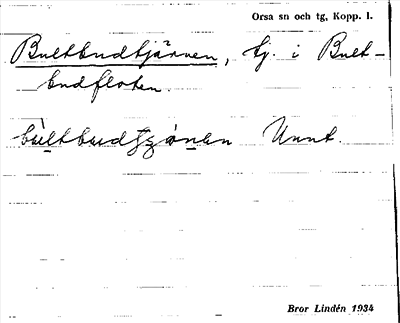 Orsa sn och tg, Kopp. l.
Bultbudtjärnen, tj. i Bult-
budfloten.
bùltbudtjä́nan Uunt.
Bror Lindén 1934